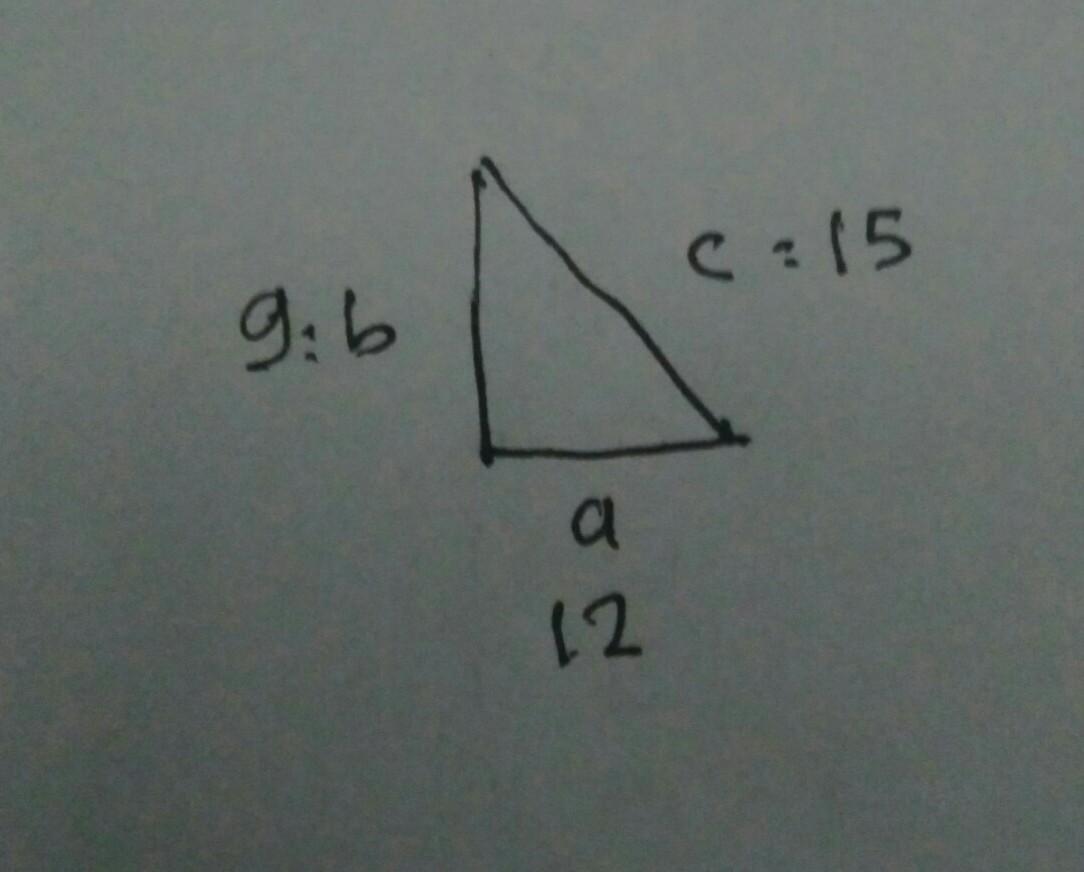 c = 15
9 = b
a
12